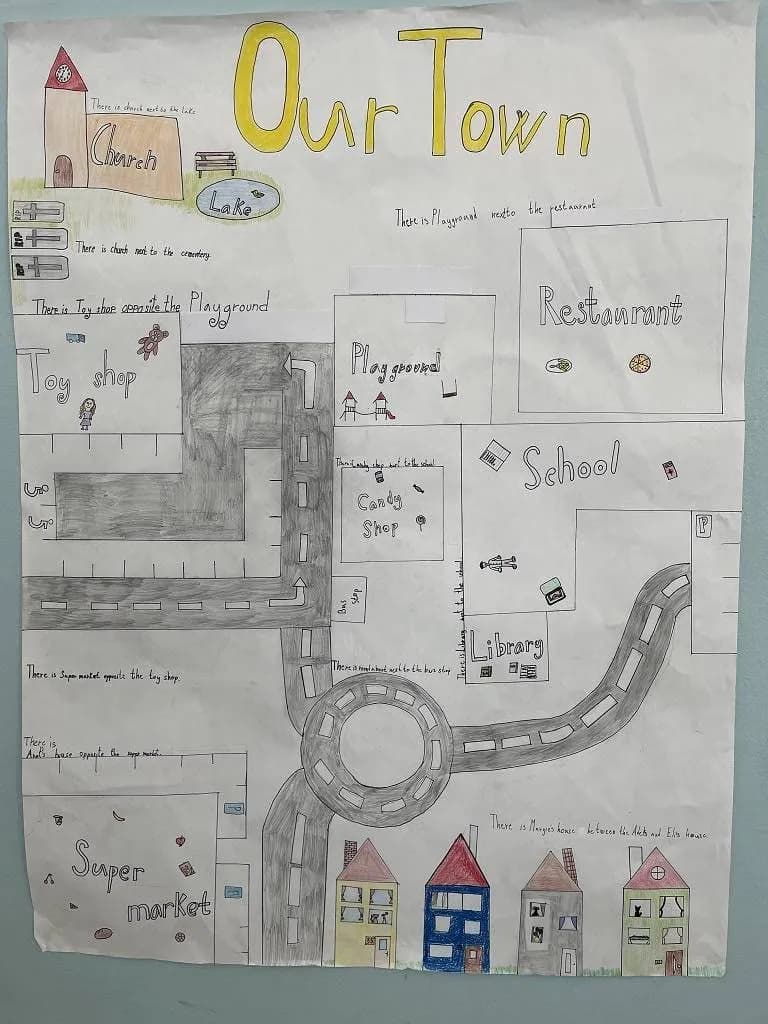 Our Town
There is church next to the lake
Church
Lake
RIP
RIP
RIP
There is church next to the cemetery.
There is Playground next to the restaurant
There is Toy shop opposite the Playground
Toy shop
Playground
Restaurant
There is candy shop next to the school
Candy
Shop
School
P
Bus
stop
There is library next to the school
Library
There is roundabout next to the bus stop
There is Super market opposite the toy shop.
There is
house opposite the super market.
P
P
Super
market
There is Margie's house between the and house